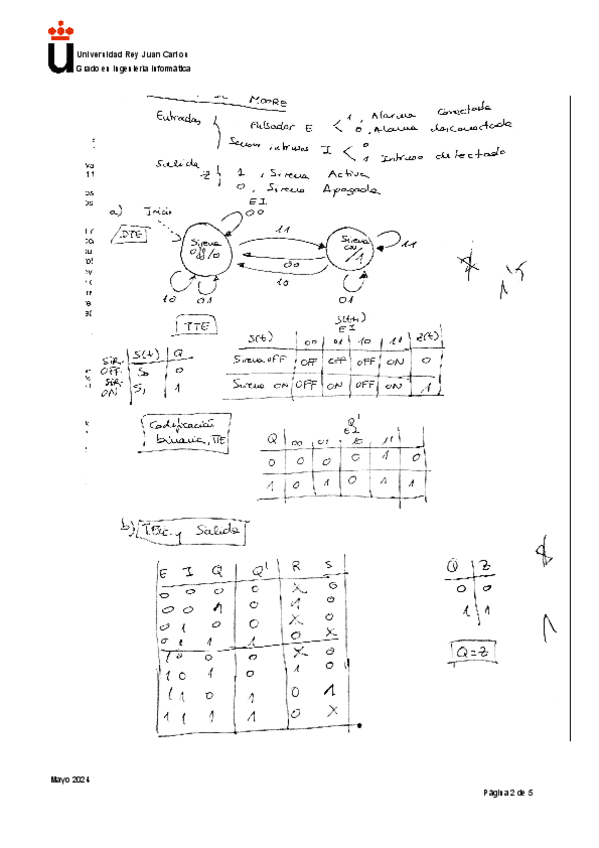 Universidad Rey Juan Carlos
Grado en Ingeniería Informática
MOORE
Entradas Pulsador E 1, Alarma Conectada
0, Alarma desconectada
Sensor intrusos I 0
1 Intruso detectado
Salida Z 1, Sirena Activa
0, Sirena Apagada
EI
a) Inicio 00
DTE 11
Sirena OFF/0 Sirena ON/1 11
00
10
10 01 01
TTE
S(t+1)
EI
S(t) 00 01 10 11 Z(t)
Sirena OFF OFF OFF OFF ON 0
Sirena ON OFF ON OFF ON 1
S(t) Q
SIR. OFF S0 0
SIR. ON S1 1
Codificación
binaria, TTE
Q'
EI
Q 00 01 10 11
0 0 0 0 1 0
1 0 1 0 1 1
b) y Salida
E I Q Q' R S
0 0 0 0 X 0
0 0 1 0 1 0
0 1 0 0 X 0
0 1 1 1 0 X
1 0 0 0 X 0
1 0 1 0 1 0
1 1 0 1 0 1
1 1 1 1 0 X
Q Z
0 0
1 1
Q=Z
Mayo 2024
Página 2 de 5